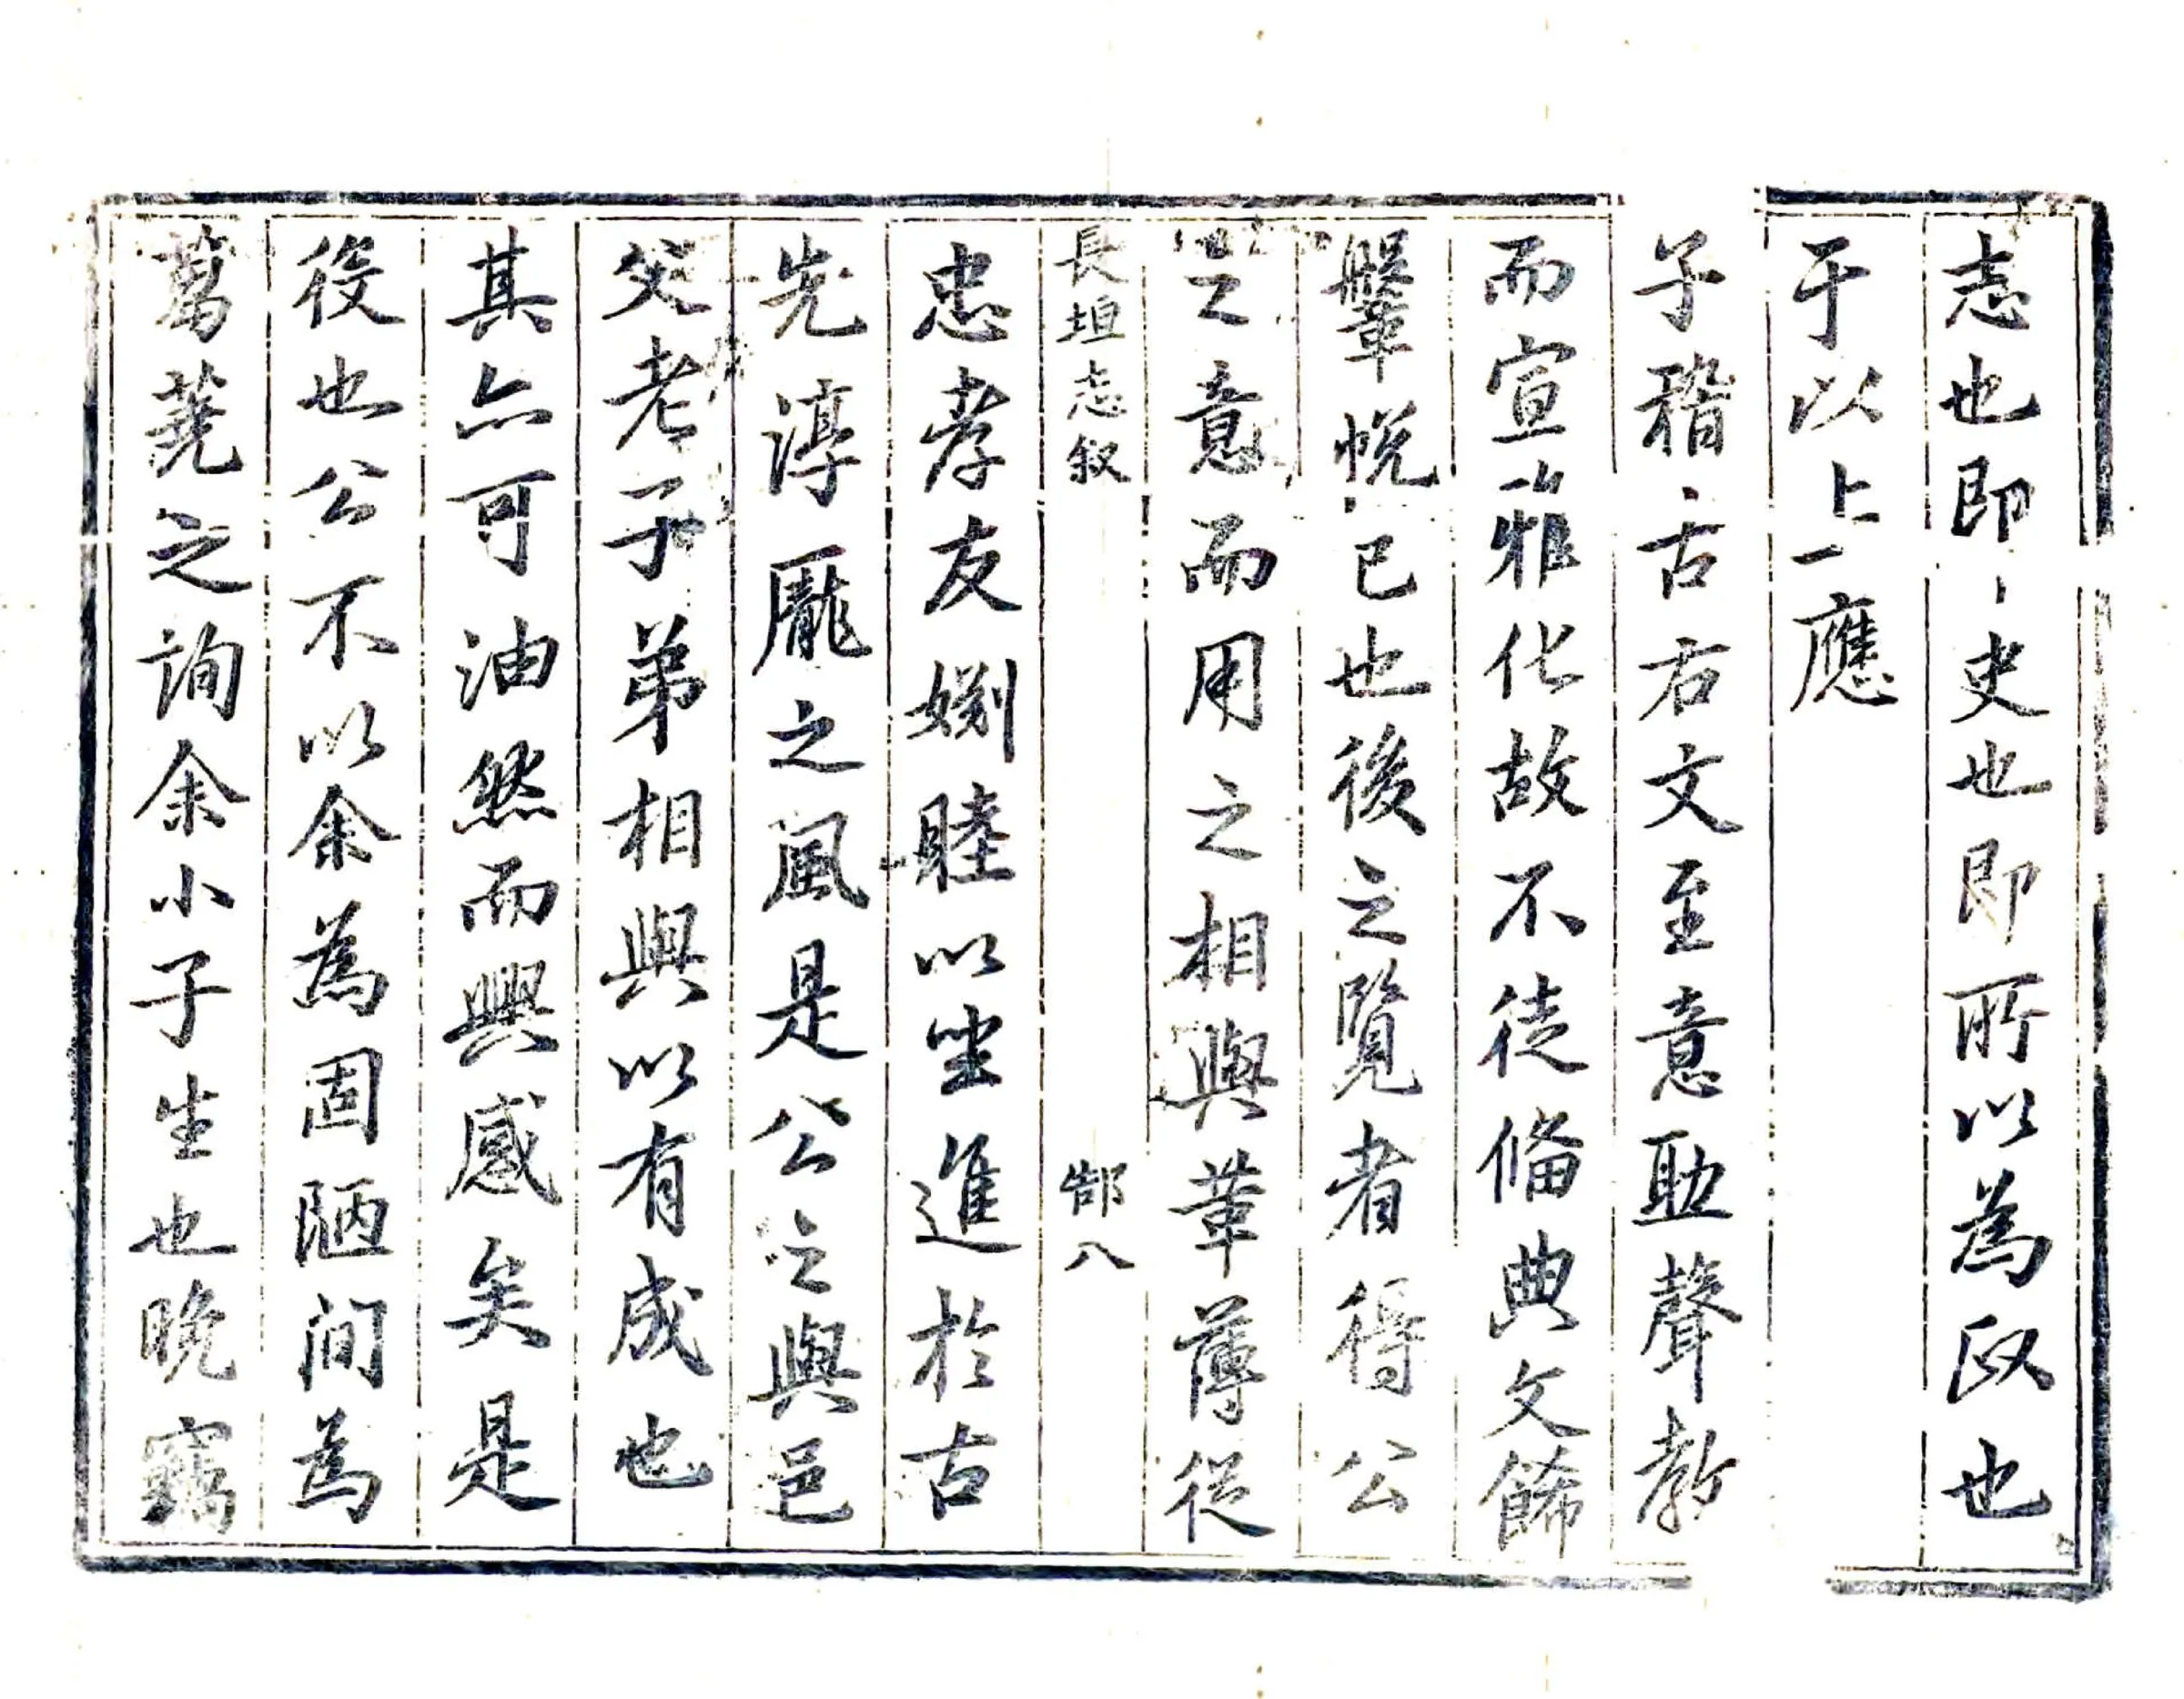 志也即史也即所以為政也
于以上應
子稽古右文至意耿聲教
而宣雅化故不徒俻典文餙
鞶帨已也後之覽者得公
之意而用之相與葦薄從
長垣志叙 郜八
忠孝友婣睦以坐進於古
先淳龎之風是公之與邑
父老子弟相與以有成也
其亦可油然而興感矣是
役也公不以余為固陋间為
蒭蕘之詢余小子生也晚竊